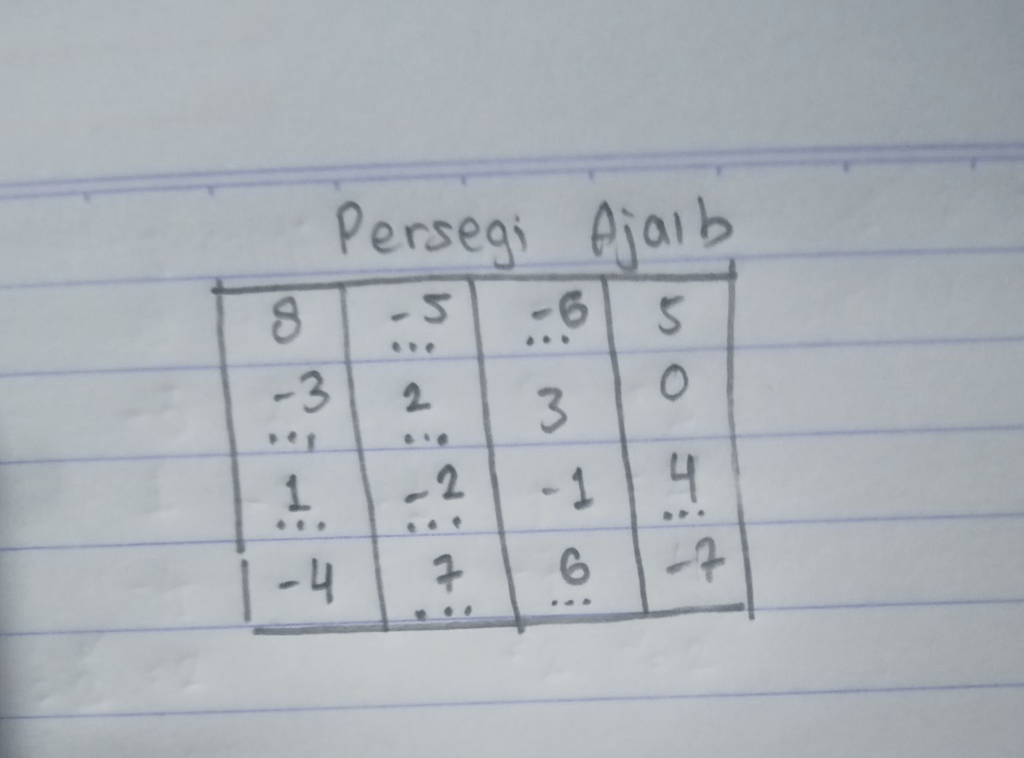 Persegi Ajaib
8 -5 -6 5
... ...
-3 2 3 0
... ...
1 -2 -1 4
... ... ...
-4 7 6 -7
... ...